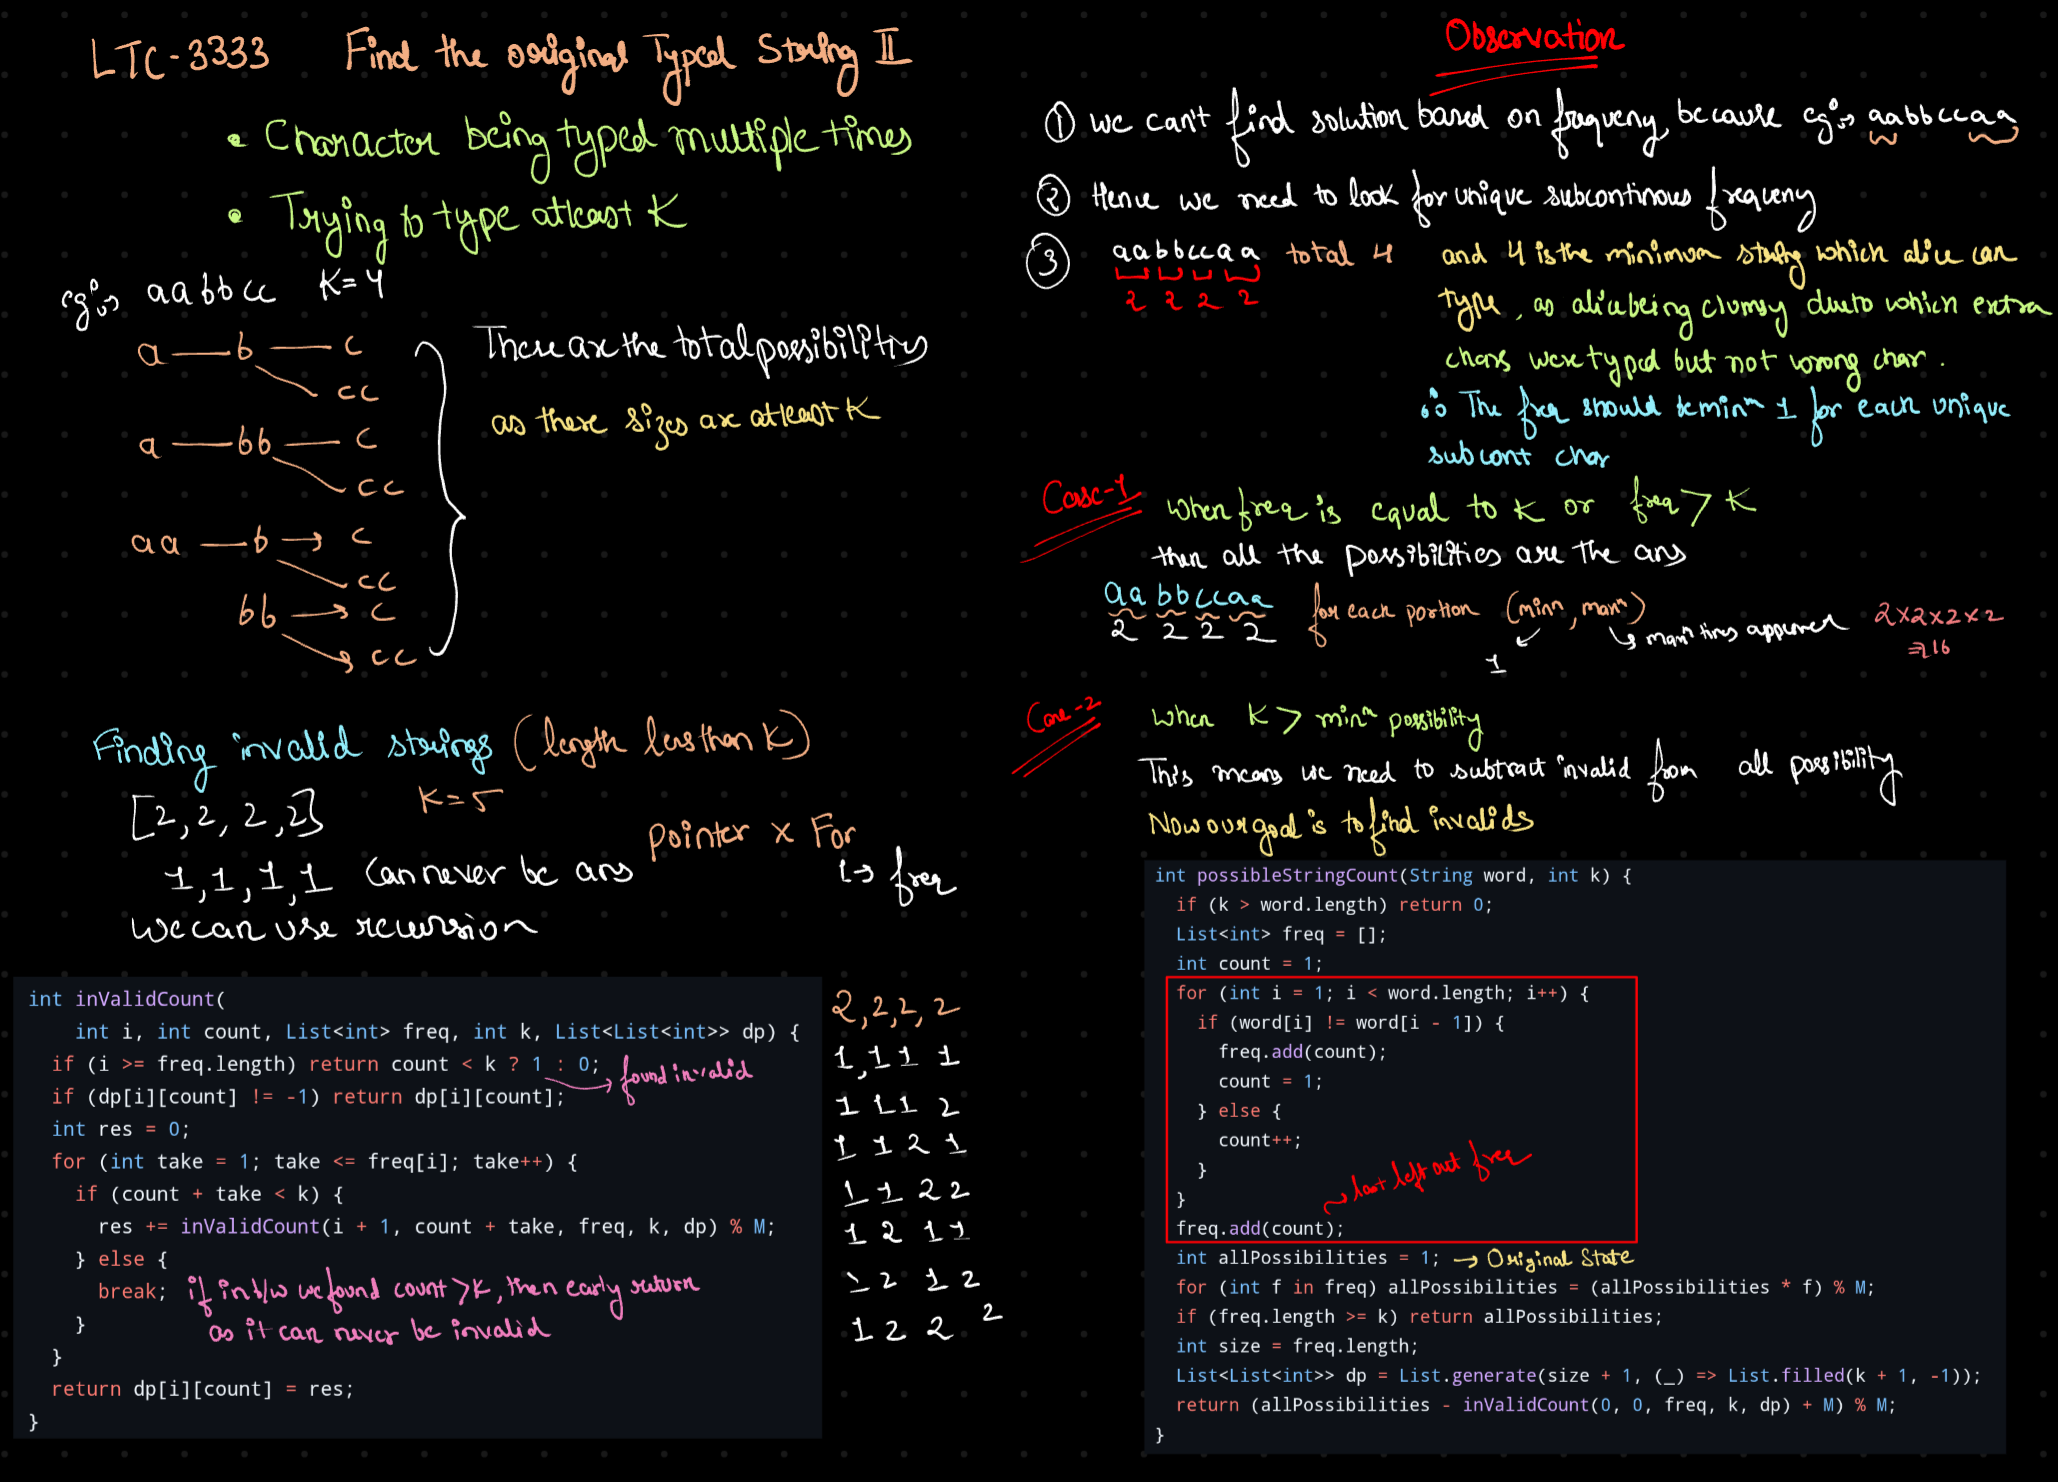 LTC-3333 Find the original Typed String II
• Character being typed multiple times
• Trying to type atleast K
eg:→ aabbcc K=4
a — b — c
cc
a — bb — c
cc
aa — b → c
cc
bb → c
cc
These are the total possibilities
as there sizes are atleast K
Finding invalid strings (length less than K)
[2,2,2,2] K=5
1,1,1,1 Can never be ans
pointer x For
↳ freq
We can use recursion
int inValidCount(
int i, int count, List<int> freq, int k, List<List<int>> dp) {
if (i >= freq.length) return count < k ? 1 : 0;
→ found invalid
if (dp[i][count] != -1) return dp[i][count];
int res = 0;
for (int take = 1; take <= freq[i]; take++) {
if (count + take < k) {
res += inValidCount(i + 1, count + take, freq, k, dp) % M;
} else {
break; if in b/w we found count >K, then early return
} as it can never be invalid
}
return dp[i][count] = res;
}
2,2,2,2
1,1 1 1
1 1 1 2
1 1 2 1
1 1 2 2
1 2 1 1
1 2 1 2
1 2 2 2
Observation
① we can't find solution based on frequeny, because eg:→ aabbccaa
② Hence we need to look for unique subcontinous frequeny
③ aabbccaa total 4 and 4 is the minimum string which alice can
2 2 2 2
type, as alice being clumsy due to which extra
chars were typed but not wrong char.
∴ The freq should be minm 1 for each unique
subcont char
Case-1 When freq is equal to K or freq > K
then all the possibilities are the ans
aabbccaa for each portion (minm, maxm)
2 2 2 2
1
↳ maxm times appeared
2x2x2x2
=16
Case-2 When K > minm possibility
This means we need to subtract invalid from all possibility
Now our goal is to find invalids
int possibleStringCount(String word, int k) {
if (k > word.length) return 0;
List<int> freq = [];
int count = 1;
for (int i = 1; i < word.length; i++) {
if (word[i] != word[i - 1]) {
freq.add(count);
count = 1;
} else {
count++;
}
}
→ last left out freq
freq.add(count);
int allPossibilities = 1; → Original State
for (int f in freq) allPossibilities = (allPossibilities * f) % M;
if (freq.length >= k) return allPossibilities;
int size = freq.length;
List<List<int>> dp = List.generate(size + 1, (_) => List.filled(k + 1, -1));
return (allPossibilities - inValidCount(0, 0, freq, k, dp) + M) % M;
}